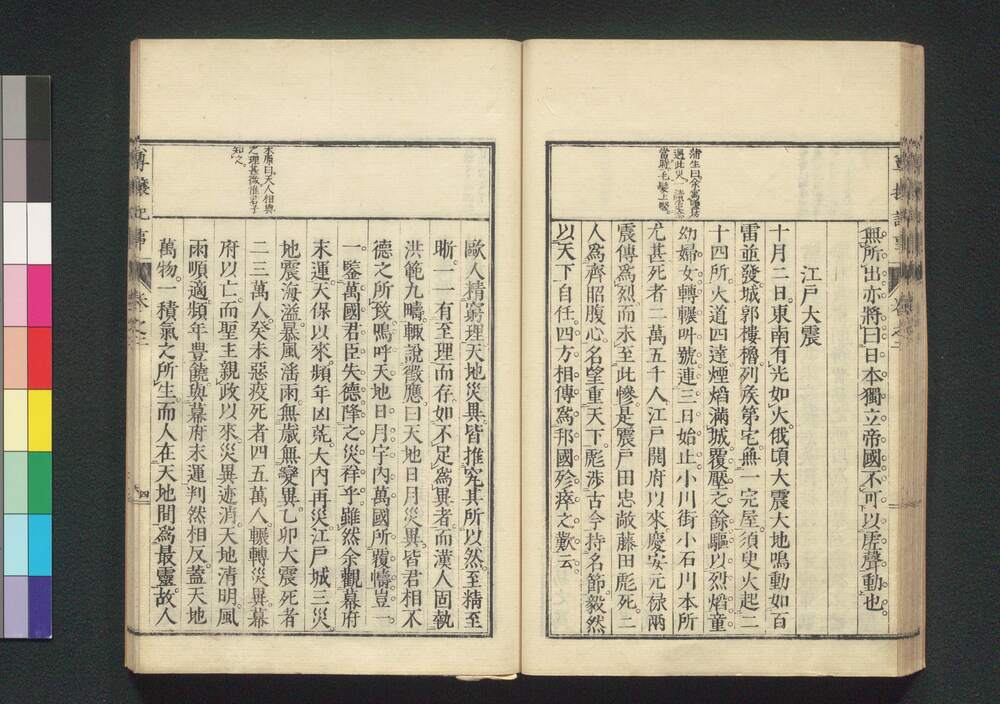 無所出亦將曰日本獨立帝國不可以虛聲動也。
江戸大震
十月二日。東南有光如火。俄頃大震大地鳴動如百
雷並發。城郭樓櫓。列矦第宅。無一完屋。須臾火起二
十四所。火道四達。煙熖滿城。覆壓之餘。驅以烈熖。童
幼婦女。轉輾叫號。連三日始止。小川街小石川本所
尤甚。死者二萬五千人。江戸開府以來。慶安元祿兩
震傳爲烈。而未至此慘。是震戸田忠敞藤田彪死。二
人爲齊昭腹心。名望重天下。彪涉古今。持名節。毅然
以天下自任。四方相傳爲邦國殄瘁之歎云。
歐人精窮理。天地災異。皆推究其所以然。至精至
晣。一一有至理而存。如不足爲異者。而漢人固執
洪範九疇。輙說徵應。曰天地日月災異。皆君相不
德之所致。嗚呼天地日月。宇內萬國所覆幬。豈一
一。鑒萬國君臣失德。降之災祥乎。雖然余觀幕府
末運。天保以來。頻年凶荒。大內再災。江戸城三災。
地震海溢。暴風潘雨。無歲無變異。乙卯大震死者
二三萬人。癸未惡疫死者四五萬人。輾轉災異。幕
府以亡。而聖主親政以來。災異迹消。天地清明。風
雨順適。頻年豊饒。與幕府末運判然相反。蓋天地
萬物。一積氣之所生。而人在天地間爲最靈。故人
蒲生曰。余寓
過此災。一讀
當時毛髮上竪。
米原曰。天人相與
之理甚微。惟君子
知之。
卷之二
四